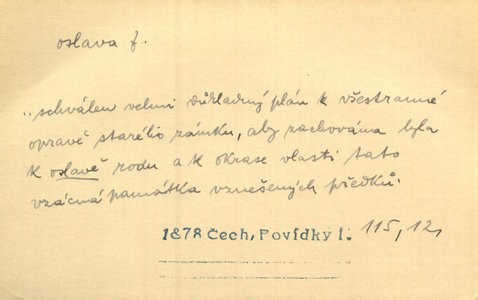 oslava f.
„schválen velmi důkladný plán k všestranné
opravě starého zámku, aby zachována byla
k oslavě rodu a k okrase vlasti tato
vzácná památka vznešených předků.
1878 Čech, Povídky I. 115, 12,